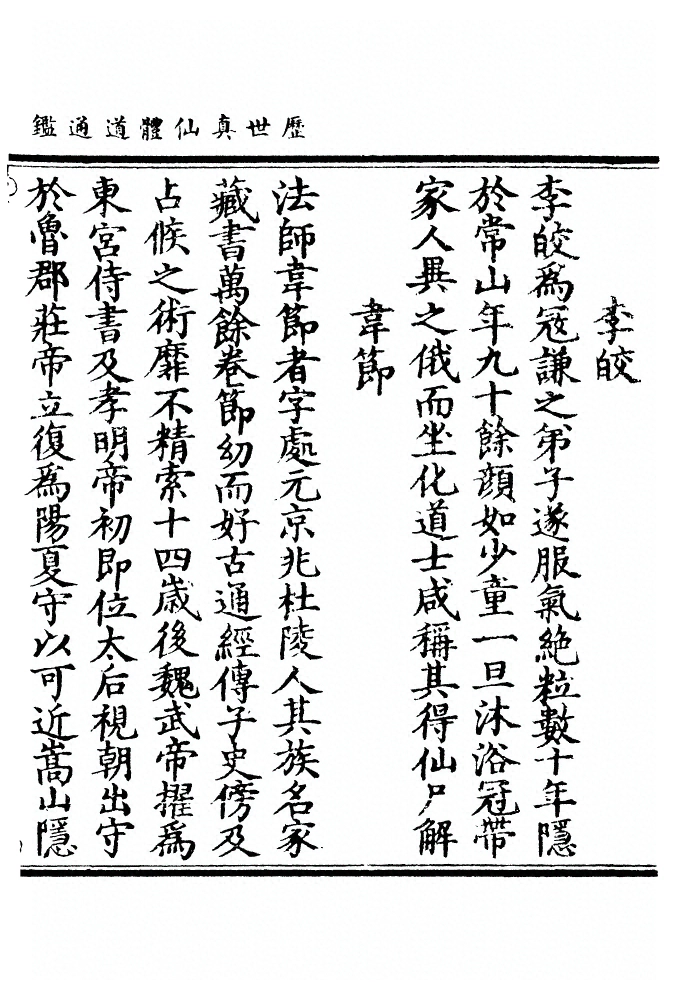 歷世真仙體道通鑑
李皎
李皎爲冦謙之弟子遂服氣絶粒數十年隱
於常山年九十餘顔如少童一旦沐浴冠帶
家人異之俄而坐化道士咸稱其得仙尸解
韋節
法師韋節者字處元京兆杜陵人其族名家
藏書萬餘卷節幼而好古通經傳子史傍及
占候之術靡不精索十四歲後魏武帝擢爲
東宮侍書及孝明帝初即位太后視朝出守
於魯郡莊帝立復爲陽夏守以可近嵩山隱